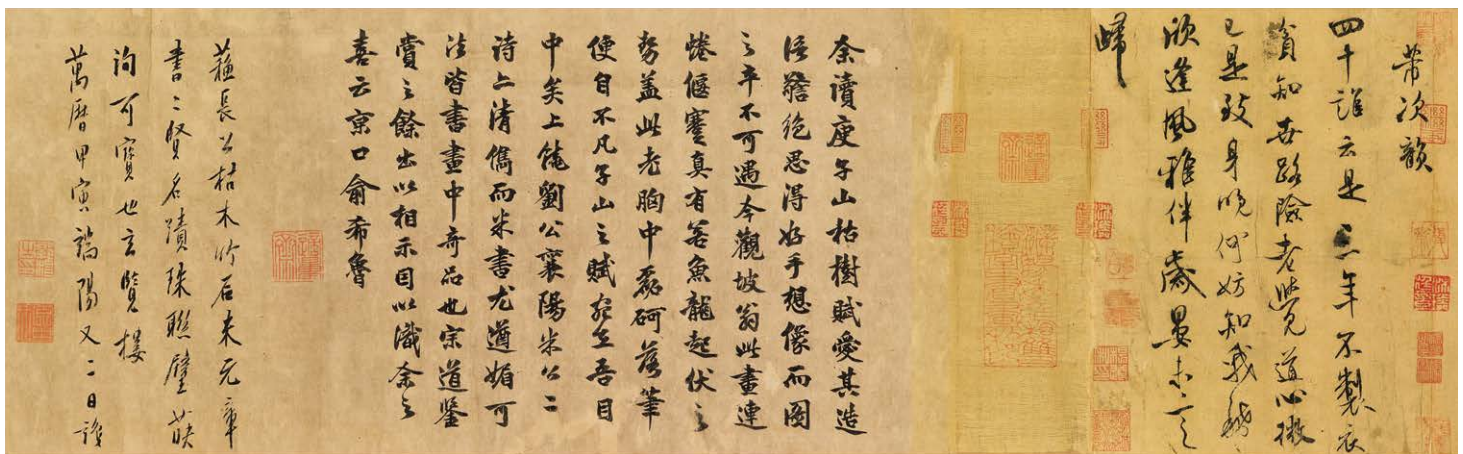 芾次韻
四十誰云是三年不製衣
貧知世路險老覺道心微
已是致身晚何妨知我稀
欣逢風雅伴歲晏未言
歸
余讀庾子山枯樹賦愛其造
語警絕思得好手想像而圖
之卒不可遇今觀坡翁此畫連
蜷偃蹇真有若魚龍起伏之
勢蓋此老胸中磊砢落筆
便自不凡子山之賦宛在吾目
中矣上饒劉公襄陽米公二
詩上清儁而米書尤遒媚可
法皆書畫中奇品也宗道鑒
賞之餘出以相示因以識余之
喜云京口俞希魯
蘇長公枯木竹石米元章
書二賢名蹟珠聯璧映
詢可寶也玄覽樓
萬曆甲寅端陽又二日識